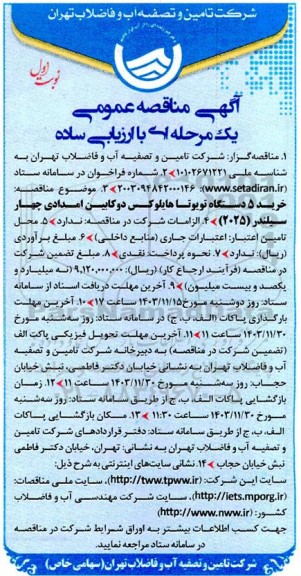 شرکت تامین و تصفیه آب و فاضلاب تهران
نوبت اول
آگهی مناقصه عمومی
یک مرحله ای با ارزیابی ساده
۱. مناقصه‌گزار: شرکت تامین و تصفیه آب و فاضلاب تهران به
شناسه ملی ۱۰۱۰۲۶۷۱۲۲۱ ۲. شماره فراخوان در سامانه ستاد
(www.setadiran.ir): ۲۰۰۳۰۹۴۸۴۲۰۰۰۱۴۶ ۳. موضوع مناقصه:
خرید ۵ دستگاه تویوتا هایلوکس دوکابین امدادی چهار
سیلندر (۲۰۲۵) ۴. الزامات شرکت در مناقصه: ندارد ۵. محل
تامین اعتبار: اعتبارات جاری (منابع داخلی) ۶. مبلغ برآوردی
(ریال): ندارد ۷. نحوه پرداخت: نقدی ۸. مبلغ تضمین شرکت
در مناقصه (فرآیند ارجاع کار) (ریال): ۹,۱۲۰,۰۰۰,۰۰۰ (نه میلیارد و
یکصد و بیست میلیون) ۹. آخرین مهلت دریافت اسناد از سامانه
ستاد: روز دوشنبه مورخ ۱۴۰۳/۱۱/۱۵ ساعت ۱۷ ۱۰. آخرین مهلت
بارگذاری پاکات (الف، ب، ج)، در سامانه ستاد: روز سه‌شنبه مورخ
۱۴۰۳/۱۱/۳۰ ساعت ۱۱ ۱۱. آخرین مهلت تحویل فیزیکی پاکت الف
(تضمین شرکت در مناقصه) به دبیرخانه شرکت تامین و تصفیه
آب و فاضلاب تهران به نشانی خیابان دکتر فاطمی، نبش خیابان
حجاب: روز سه‌شنبه مورخ ۱۴۰۳/۱۱/۳۰ ساعت ۱۱ ۱۲. زمان
بازگشایی پاکات الف، ب، ج از طریق سامانه ستاد: روز سه‌شنبه
مورخ ۱۴۰۳/۱۱/۳۰ ساعت ۱۱:۳۰ ۱۳. مکان بازگشایی پاکات
الف، ب، ج از طریق سامانه ستاد: دفتر قراردادهای شرکت تامین
و تصفیه آب و فاضلاب تهران به نشانی: تهران، خیابان دکتر فاطمی
نبش خیابان حجاب ۱۴. نشانی سایت‌های اینترنتی به شرح ذیل:
سایت این شرکت: (http://tww.tpww.ir)، سایت ملی مناقصات:
(http://iets.mporg.ir)، سایت شرکت مهندسی آب و فاضلاب
کشور: (http://www.nww.ir)
جهت کسب اطلاعات بیشتر به اوراق شرایط شرکت در مناقصه
در سامانه ستاد مراجعه نمایید.
شرکت تامین و تصفیه آب و فاضلاب تهران (سهامی خاص)